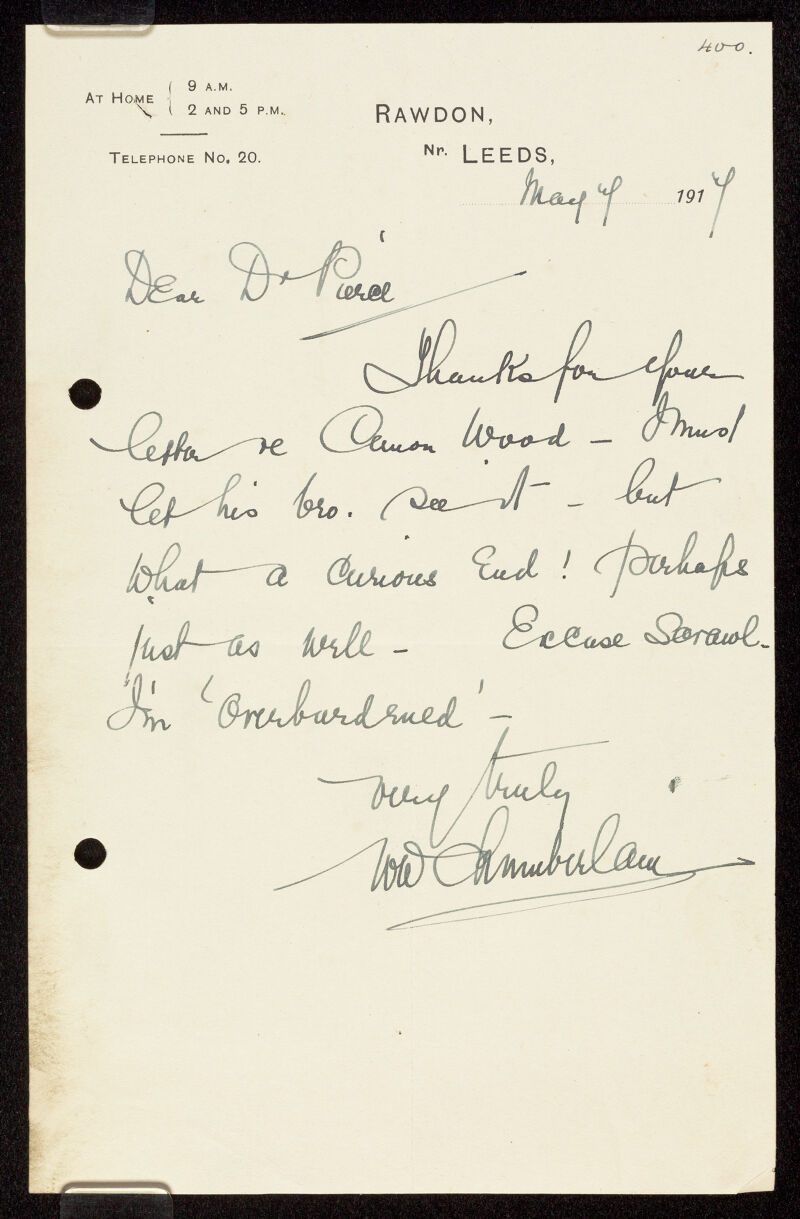 400.
AT HOME { 9 A.M.
2 AND 5 P.M.
TELEPHONE NO. 20.
RAWDON,
Nr. LEEDS,
May 7 1917
Dear Dr Pierce
Thanks for your
letter re Canon Wood – I must
let his bro. see it – but
what a curious End! perhaps
just as well – Excuse Scrawl.
I'm 'Overburdened' –
very truly
WW Chamberlain